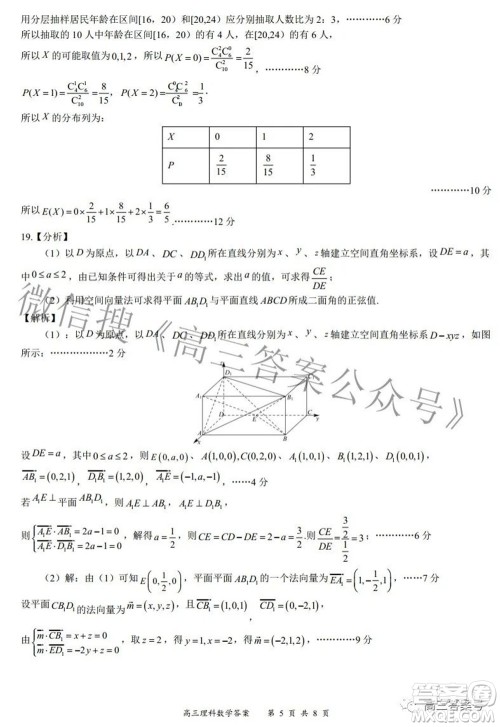 用分层抽样居民年龄在区间[16，20）和[20,24）应分别抽取人数比为 2：3，……………6分
所以抽取的 10 人中年龄在区间[16，20）的有 4 人，在[20,24）的有 6 人，
所以 X 的可能取值为 0,1,2，所以 P(X=0)=C₄⁰C₆²/C₁₀²=2/15，…………8分
P(X=1)=C₄¹C₆¹/C₁₀²=8/15， P(X=2)=
所以 X 的分布列为：
X 0 1 2
P 2/15 8/15 1/3
…………10分
所以 E(X)=0×2/15+1×8/15+2×1/3=6/5.…………12分
19.【分析】
（1）以 D 为原点，以 DA、DC、DD₁ 所在直线分别为 x、y、z 轴建立空间直角坐标系，设 DE=a，其
中 0≤a≤2，由已知条件可得出关于 a 的等式，求出 a 的值，可求得 CE/DE；
（2）利用空间向量法可求得平面 AB₁D₁ 与平面直线 ABCD 所成二面角的正弦值.
【解析】
（1）：以 D 为原点，以 DA、DC、DD₁ 所在直线分别为 x、y、z 轴建立空间直角坐标系 D−xyz，如图
所示：…………2分
D₁ A₁ B₁ D C y A B x E
设 DE=a，其中 0≤a≤2，则 E(0,a,0)、A(1,0,0),C(0,2,0)、B₁(1,2,1)、D₁(0,0,1)，
AB₁=(0,2,1)，D₁B₁=(1,2,0)，A₁E=(−1,a,−1)，……4分
若 A₁E⊥平面 AB₁D₁，则 A₁E⊥AB₁，A₁E⊥D₁B₁，
则{A₁E·AB₁=2a−1=0 A₁E·D₁B₁=2a−1=0，解得 a=1/2，则 CE=CD−DE=2−a=3/2.则 CE/DE=(3/2)/(1/2)=3：…………6分
（2）解：由（1）可知 E(0,1/2,0)，平面平面 AB₁D₁ 的一个法向量为 EA₁=(1,−1/2,1)，……7分
设平面 CB₁D₁ 的法向量为 m=(x,y,z)，且 CB₁=(1,0,1) CD₁=(0,−2,1)，
由{m·CB₁=x+z=0 m·ED₁=−2y+z=0，取 z=2，得 y=1,x=−2，得 m=(−2,1,2)，……9分
高三理科数学答案 第 5 页 共 8 页
微信搜《高三答案公众号》
高三答案号